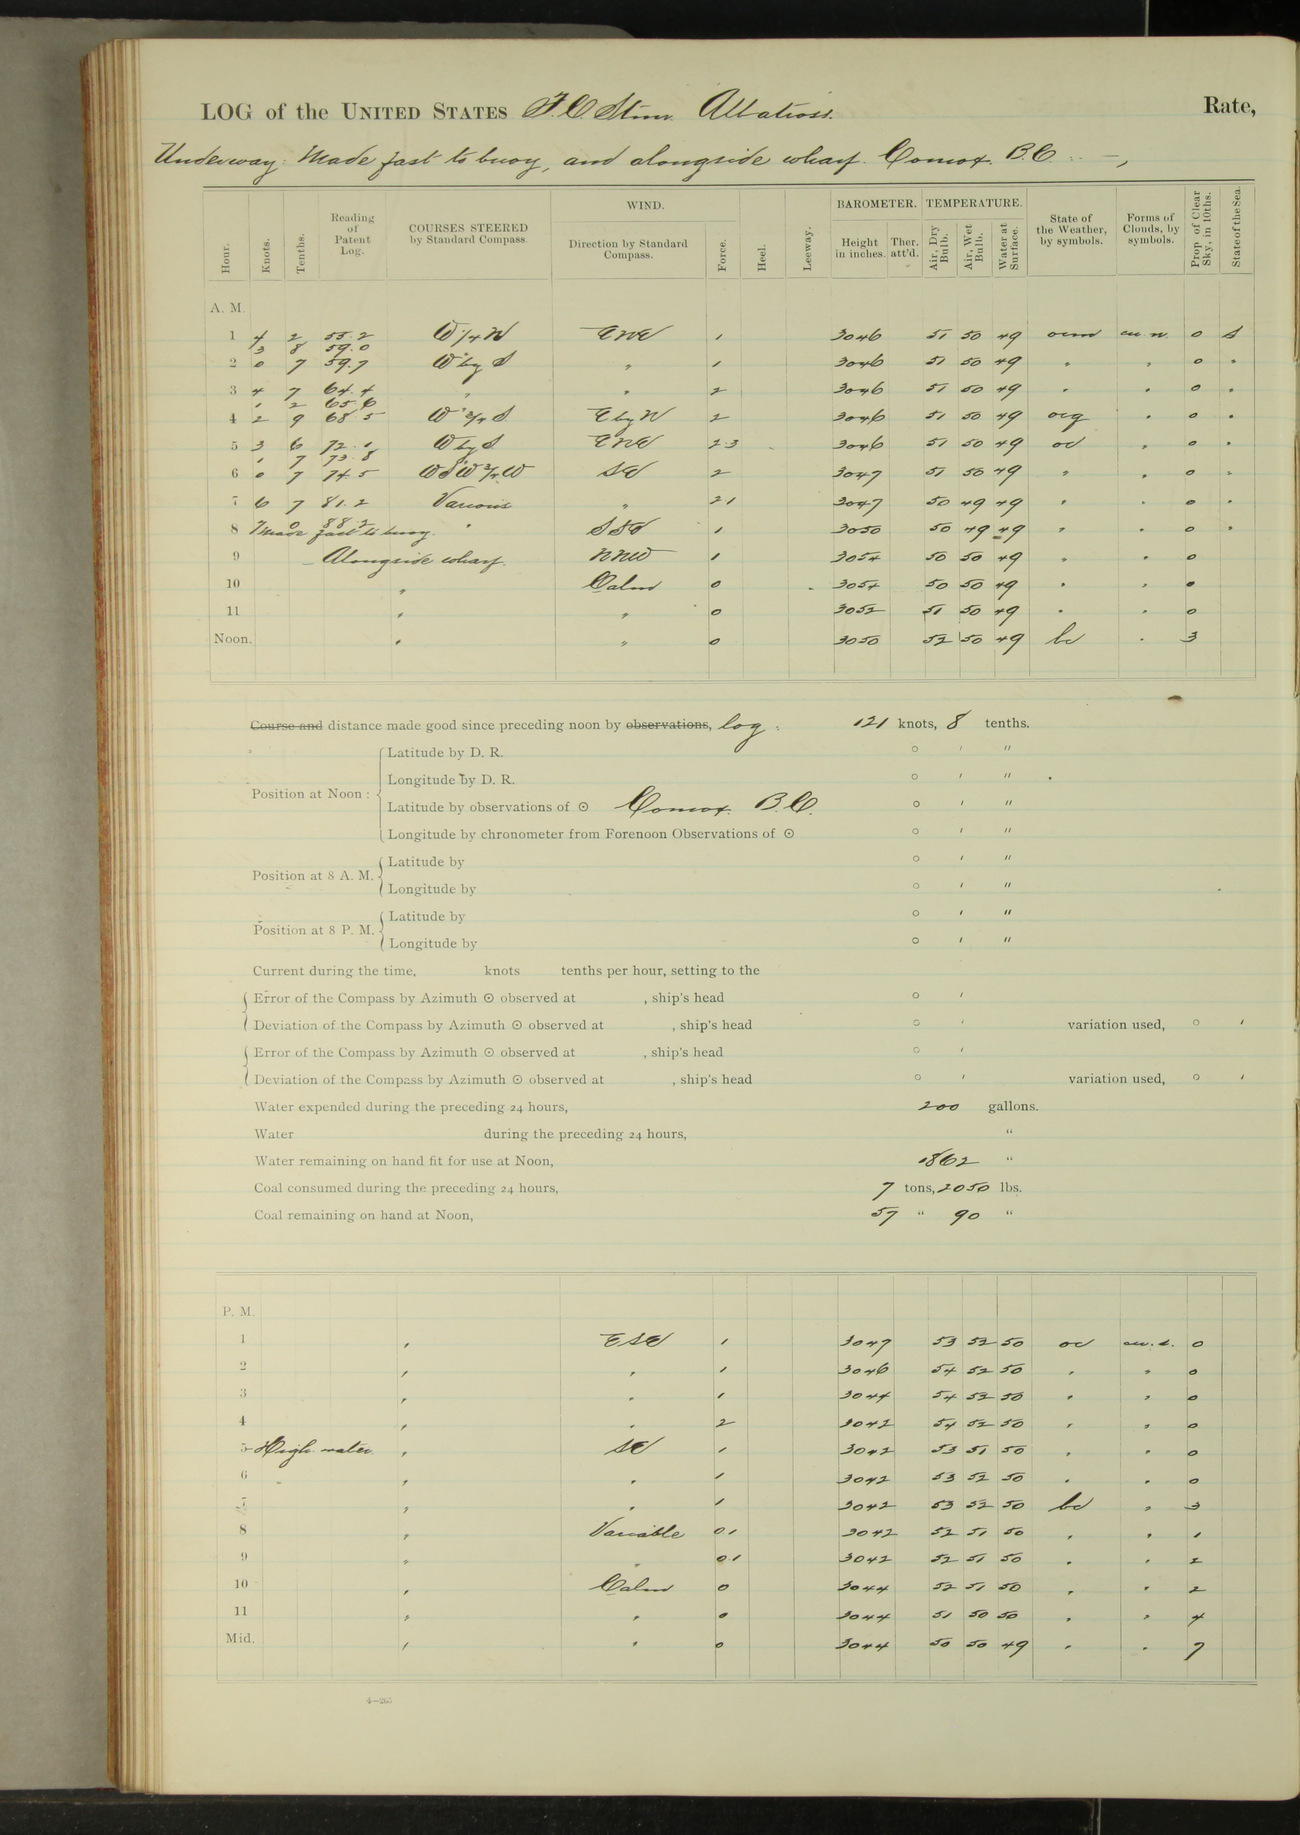 LOG of the UNITED STATES F. C. Stmr. Albatross. Rate,
Underway: Made fast to buoy, and alongside wharf. Comox. B.C.
Hour. Knots. Tenths. Reading of Patent Log. COURSES STEERED by Standard Compass. WIND. Direction by Standard Compass. Force. Heel. Leeway. BAROMETER. Height in inches. Ther. att'd. TEMPERATURE. Air, Dry Bulb. Air, Wet Bulb. Water at Surface. State of the Weather, by symbols. Forms of Clouds, by symbols. Prop. of Clear Sky, in 10ths. State of the Sea.
A. M.
1 4 2 55.2 W 1/4 N ENE 1 3046 51 50 49 ocm cu. n. 0 S
3 8 59.0
2 0 7 59.7 W by S " 1 3046 51 50 49 " " 0 "
3 4 7 64.4 " " 2 3046 51 50 49 " " 0 "
1 2 65.6
4 2 9 68.5 W 3/4 S E by N 2 3046 51 50 49 ocg " 0 "
5 3 6 72.1 W by S ENE 2-3 3046 51 50 49 oc " 0 "
1 7 73.8
6 0 7 74.5 WSW 3/4 W SE 2 3047 51 50 49 " " 0 "
7 6 7 81.2 Various " 2-1 3047 50 49 49 " " 0 "
7 0 88.2
8 Made fast to buoy. " SSE 1 3050 50 49 49 " " 0 "
9 Alongside wharf. NNW 1 3054 50 50 49 " " 0
10 " Calm 0 3054 50 50 49 " " 0
11 " " 0 3052 51 50 49 " " 0
Noon. " " 0 3050 52 50 49 bc " 3
Course and distance made good since preceding noon by observations, log. 121 knots, 8 tenths.
Latitude by D. R. ° ′ ″
Longitude by D. R. ° ′ ″
Position at Noon:
Latitude by observations of ⊙ Comox. B.C. ° ′ ″
Longitude by chronometer from Forenoon Observations of ⊙ ° ′ ″
Latitude by ° ′ ″
Position at 8 A. M.
Longitude by ° ′ ″
Latitude by ° ′ ″
Position at 8 P. M.
Longitude by ° ′ ″
Current during the time, knots tenths per hour, setting to the
Error of the Compass by Azimuth ⊙ observed at , ship's head ° ′
Deviation of the Compass by Azimuth ⊙ observed at , ship's head ° ′ variation used, ° ′
Error of the Compass by Azimuth ⊙ observed at , ship's head ° ′
Deviation of the Compass by Azimuth ⊙ observed at , ship's head ° ′ variation used, ° ′
Water expended during the preceding 24 hours, 200 gallons.
Water during the preceding 24 hours, "
Water remaining on hand fit for use at Noon, 1862 "
Coal consumed during the preceding 24 hours, 7 tons, 2050 lbs.
Coal remaining on hand at Noon, 57 " 90 "
P. M.
1 " ESE 1 3047 53 52 50 oc cu. s. 0
2 " " 1 3046 54 52 50 " " 0
3 " " 1 3044 54 52 50 " " 0
4 " " 2 3042 54 52 50 " " 0
5 High water " SE 1 3042 53 51 50 " " 0
6 " " 1 3042 53 52 50 " " 0
7 " " 1 3042 53 52 50 bc " 3
8 " Variable 0-1 3042 52 51 50 " " 1
9 " " 0-1 3042 52 51 50 " " 2
10 " Calm 0 3044 52 51 50 " " 2
11 " " 0 3044 51 50 50 " " 4
Mid. " " 0 3044 50 50 49 " " 7
4—265